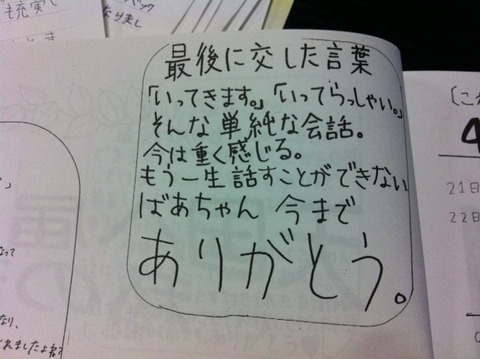 も充実し
パック
なりまし
最後に交した言葉
「いってきます。」「いってらっしゃい。」
そんな単純な会話。
今は重く感じる。
もう一生話すことができない
ばあちゃん 今まで
ありがとう。
なって
なり、
れましたよ
21日
22日